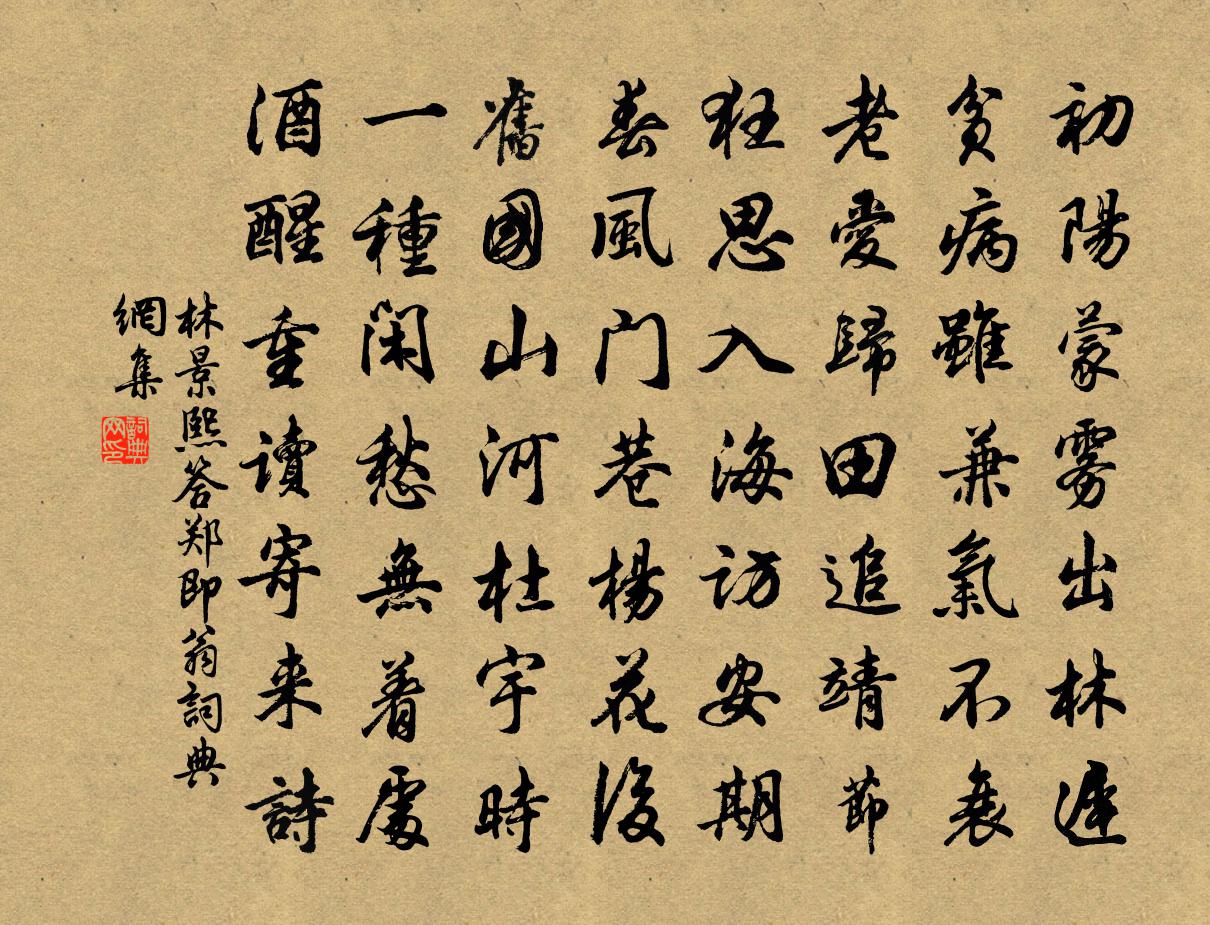 初陽蒙雾出林遲
貧病雖兼氣不衰
老愛歸田追靖節
狂思入海訪安期
春風门巷楊花後
舊國山河杜宇時
一種閑愁無着處
酒醒重讀寄来詩
林景熙答郑即翁詞典
網集
詞典网印